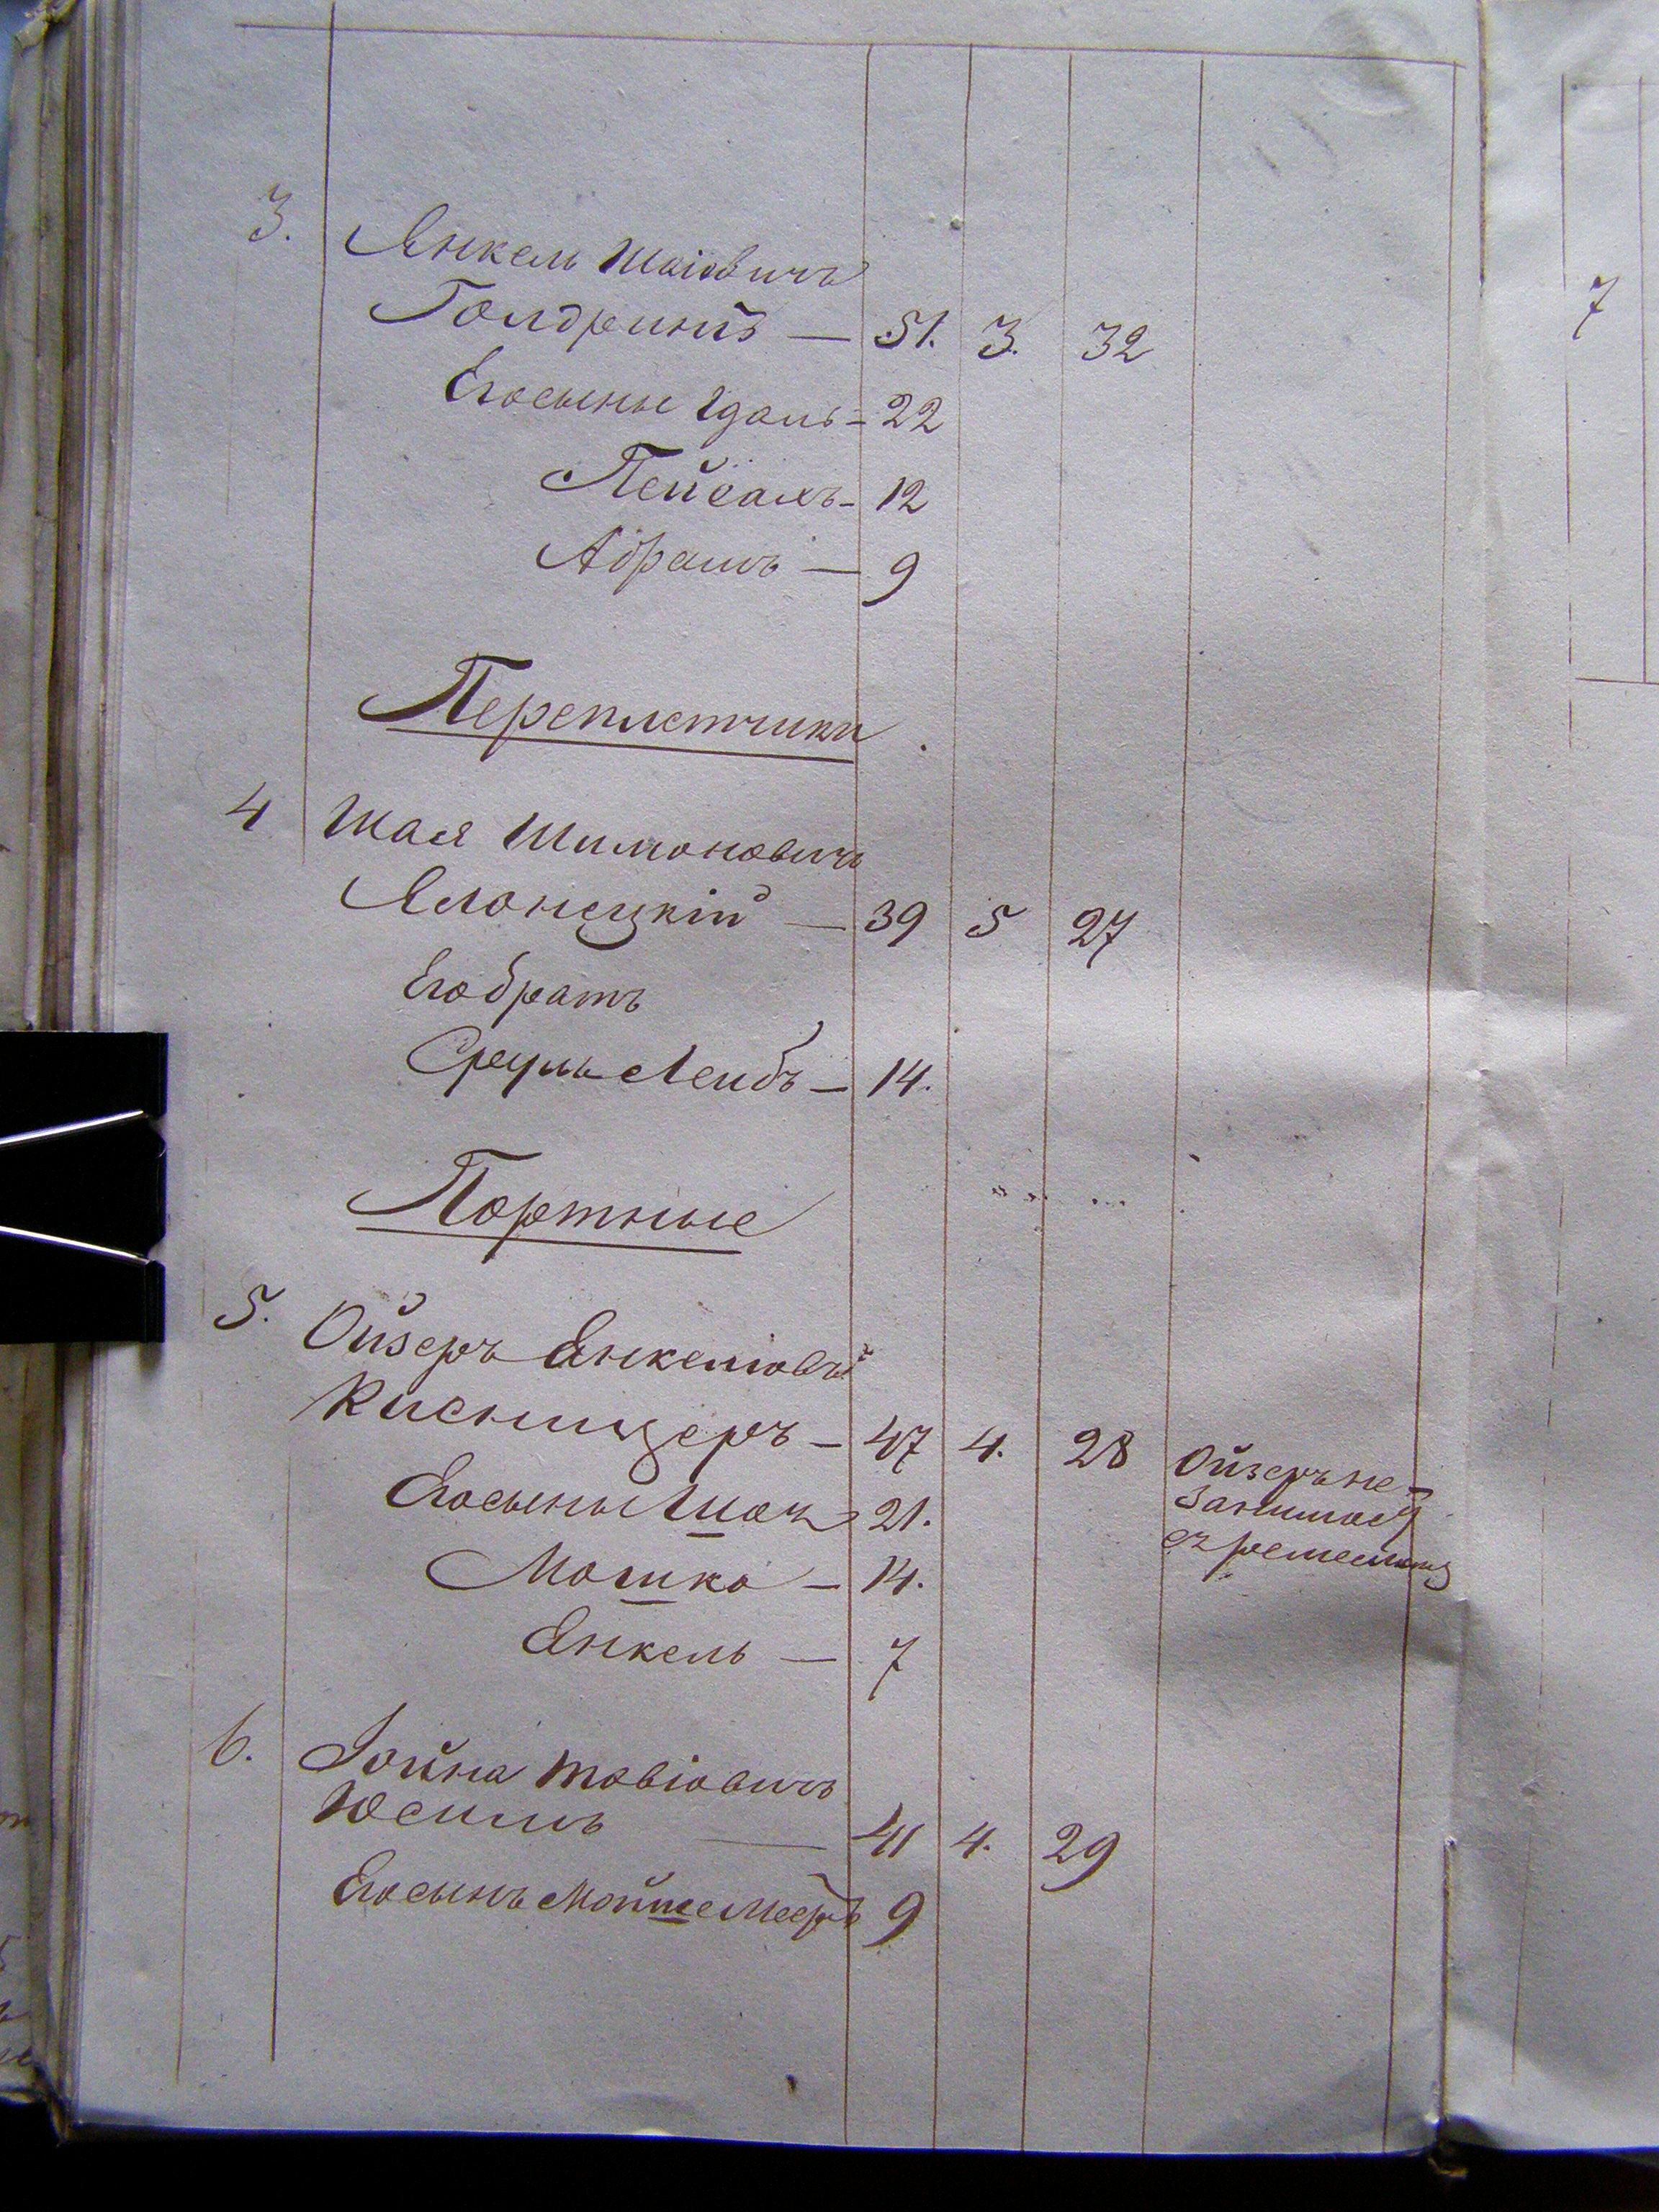 3. Янкель Шаіовичъ
Голдринъ — 51. 3. 32
Его сыны Идаль - 22
Пейсахъ - 12
Абрамъ — 9
Переплетчики
4 Шая Шимоновичъ
Ялонецкій — 39 5 27
Его братъ
Сруль Лейбъ — 14.
Портные
5. Ойзеръ Янкеліовъ
Кисницеръ — 47 4. 28 Ойзеръ не
занимает
съ ремесломъ
Его сыны 21.
Мошко — 14.
Янкель — 7
6. Іойна Товіовичъ
Юсимъ — 41 4. 29
Его сынъ Мойше Мееръ 9
7